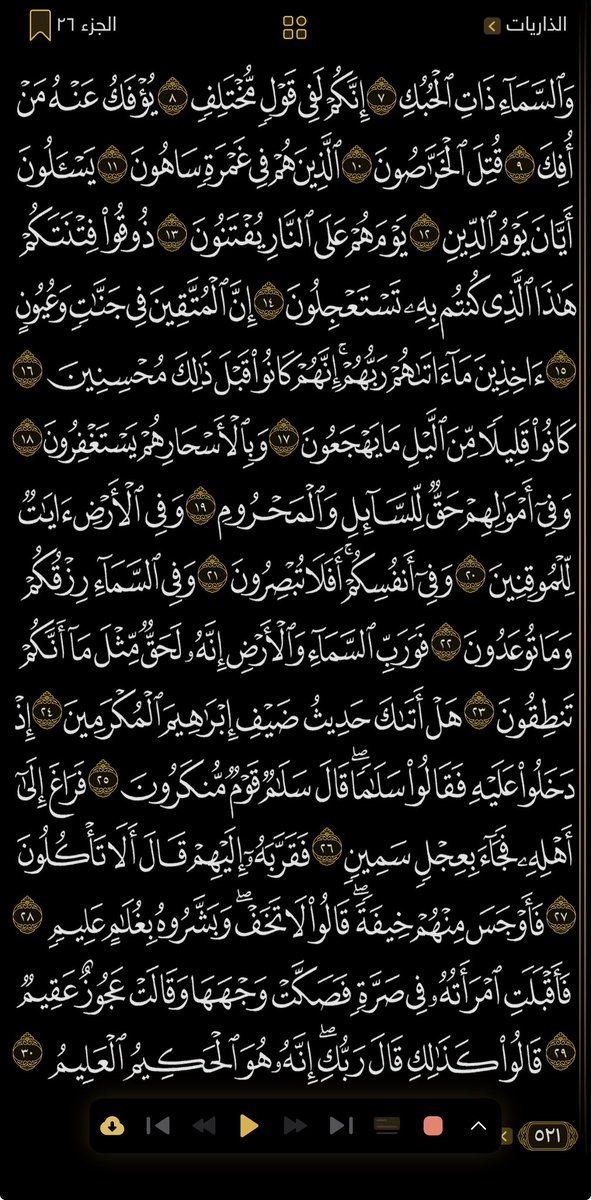 الذاريات
الجزء ٢٦
وَٱلسَّمَآءِ ذَاتِ ٱلْحُبُكِ ٧ إِنَّكُمْ لَفِى قَوْلٍ مُّخْتَلِفٍ ٨ يُؤْفَكُ عَنْهُ مَنْ
أُفِكَ ٩ قُتِلَ ٱلْخَرَّٰصُونَ ١٠ ٱلَّذِينَ هُمْ فِى غَمْرَةٍ سَاهُونَ ١١ يَسْـَٔلُونَ
أَيَّانَ يَوْمُ ٱلدِّينِ ١٢ يَوْمَ هُمْ عَلَى ٱلنَّارِ يُفْتَنُونَ ١٣ ذُوقُوا۟ فِتْنَتَكُمْ
هَٰذَا ٱلَّذِى كُنتُم بِهِۦ تَسْتَعْجِلُونَ ١٤ إِنَّ ٱلْمُتَّقِينَ فِى جَنَّٰتٍ وَعُيُونٍ
١٥ ءَاخِذِينَ مَآ ءَاتَىٰهُمْ رَبُّهُمْ ۚ إِنَّهُمْ كَانُوا۟ قَبْلَ ذَٰلِكَ مُحْسِنِينَ ١٦
كَانُوا۟ قَلِيلًا مِّنَ ٱلَّيْلِ مَا يَهْجَعُونَ ١٧ وَبِٱلْأَسْحَارِ هُمْ يَسْتَغْفِرُونَ ١٨
وَفِىٓ أَمْوَٰلِهِمْ حَقٌّ لِّلسَّآئِلِ وَٱلْمَحْرُومِ ١٩ وَفِى ٱلْأَرْضِ ءَايَٰتٌ
لِّلْمُوقِنِينَ ٢٠ وَفِىٓ أَنفُسِكُمْ ۚ أَفَلَا تُبْصِرُونَ ٢١ وَفِى ٱلسَّمَآءِ رِزْقُكُمْ
وَمَا تُوعَدُونَ ٢٢ فَوَرَبِّ ٱلسَّمَآءِ وَٱلْأَرْضِ إِنَّهُۥ لَحَقٌّ مِّثْلَ مَآ أَنَّكُمْ
تَنطِقُونَ ٢٣ هَلْ أَتَىٰكَ حَدِيثُ ضَيْفِ إِبْرَٰهِيمَ ٱلْمُكْرَمِينَ ٢٤ إِذْ
دَخَلُوا۟ عَلَيْهِ فَقَالُوا۟ سَلَٰمًا ۖ قَالَ سَلَٰمٌ قَوْمٌ مُّنكَرُونَ ٢٥ فَرَاغَ إِلَىٰٓ
أَهْلِهِۦ فَجَآءَ بِعِجْلٍ سَمِينٍ ٢٦ فَقَرَّبَهُۥٓ إِلَيْهِمْ قَالَ أَلَا تَأْكُلُونَ
٢٧ فَأَوْجَسَ مِنْهُمْ خِيفَةً ۖ قَالُوا۟ لَا تَخَفْ ۖ وَبَشَّرُوهُ بِغُلَٰمٍ عَلِيمٍ ٢٨
فَأَقْبَلَتِ ٱمْرَأَتُهُۥ فِى صَرَّةٍ فَصَكَّتْ وَجْهَهَا وَقَالَتْ عَجُوزٌ عَقِيمٌ
٢٩ قَالُوا۟ كَذَٰلِكِ قَالَ رَبُّكِ ۖ إِنَّهُۥ هُوَ ٱلْحَكِيمُ ٱلْعَلِيمُ ٣٠
٥٢١